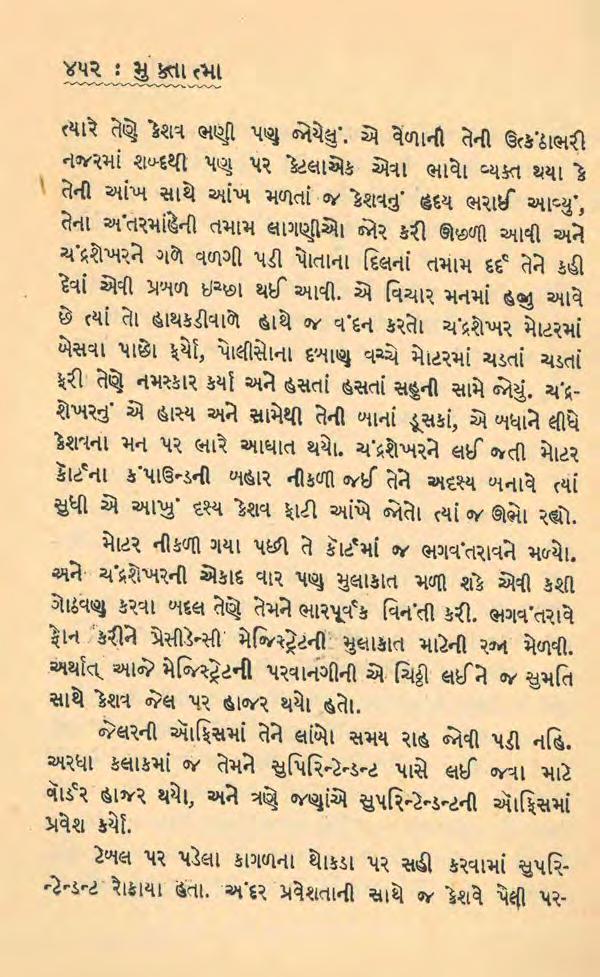 ૪૫૨ : મું ક્તા ત્મા
ત્યારે તેણે કેશવ ભણી પણ જોયેલું. એ વેળાની તેની ઉત્કંઠાભરી
નજરમાં શબ્દથી પણ પર કેટલાએક એવા ભાવો વ્યક્ત થયા કે
તેની આંખ સાથે આંખ મળતાં જ કેશવનું હૃદય ભરાઈ આવ્યું,
તેના અંતરમાંહેની તમામ લાગણીઓ જોર કરી ઊછળી આવી અને
ચંદ્રશેખરને ગળે વળગી પડી પોતાના દિલનાં તમામ દર્દ તેને કહી
દેવાં એવી પ્રબળ ઇચ્છા થઈ આવી. એ વિચાર મનમાં હજી આવે
છે ત્યાં તો હાથકડીવાળે હાથે જ વંદન કરતો ચંદ્રશેખર મોટરમાં
બેસવા પાછો ફર્યો, પોલીસોના દબાણ વચ્ચે મોટરમાં ચડતાં ચડતાં
ફરી તેણે નમસ્કાર કર્યા અને હસતાં હસતાં સહુની સામે જોયું. ચંદ્ર-
શેખરનું એ હાસ્ય અને સામેથી તેની બાનાં ડૂસકાં, એ બધાને લીધે
કેશવના મન પર ભારે આઘાત થયો. ચંદ્રશેખરને લઈ જતી મોટર
કૉર્ટના કંપાઉન્ડની બહાર નીકળી જઈ તેને અદશ્ય બનાવે ત્યાં
સુધી એ આખું દશ્ય કેશવ ફાટી આંખે જોતો ત્યાં જ ઊભો રહ્યો.
મોટર નીકળી ગયા પછી તે કૉર્ટમાં જ ભગવંતરાવને મળ્યો.
અને ચંદ્રશેખરની એકાદ વાર પણ મુલાકાત મળી શકે એવી કશી
ગોઠવણ કરવા બદલ તેણે તેમને ભારપૂર્વક વિનંતી કરી. ભગવંતરાવે
ફોન કરીને પ્રેસીડેન્સી મેજિસ્ટ્રેટની મુલાકાત માટેની રજા મેળવી.
અર્થાત્ આજે મેજિસ્ટ્રેટની પરવાનગીની એ ચિઠ્ઠી લઈને જ સુમતિ
સાથે કેશવ જેલ પર હાજર થયો હતો.
જેલરની ઑફિસમાં તેને લાંબો સમય રાહ જોવી પડી નહિ.
અરધા કલાકમાં જ તેમને સુપિરિન્ટેન્ડન્ટ પાસે લઈ જવા માટે
વૉર્ડર હાજર થયો, અને ત્રણે જણાંએ સુપરિન્ટેન્ડન્ટની ઑફિસમાં
પ્રવેશ કર્યો.
ટેબલ પર પડેલા કાગળના થોકડા પર સહી કરવામાં સુપરિ-
ન્ટેન્ડન્ટ રોકાયા હતા. અંદર પ્રવેશતાની સાથે જ કેશવે પેલી પર-